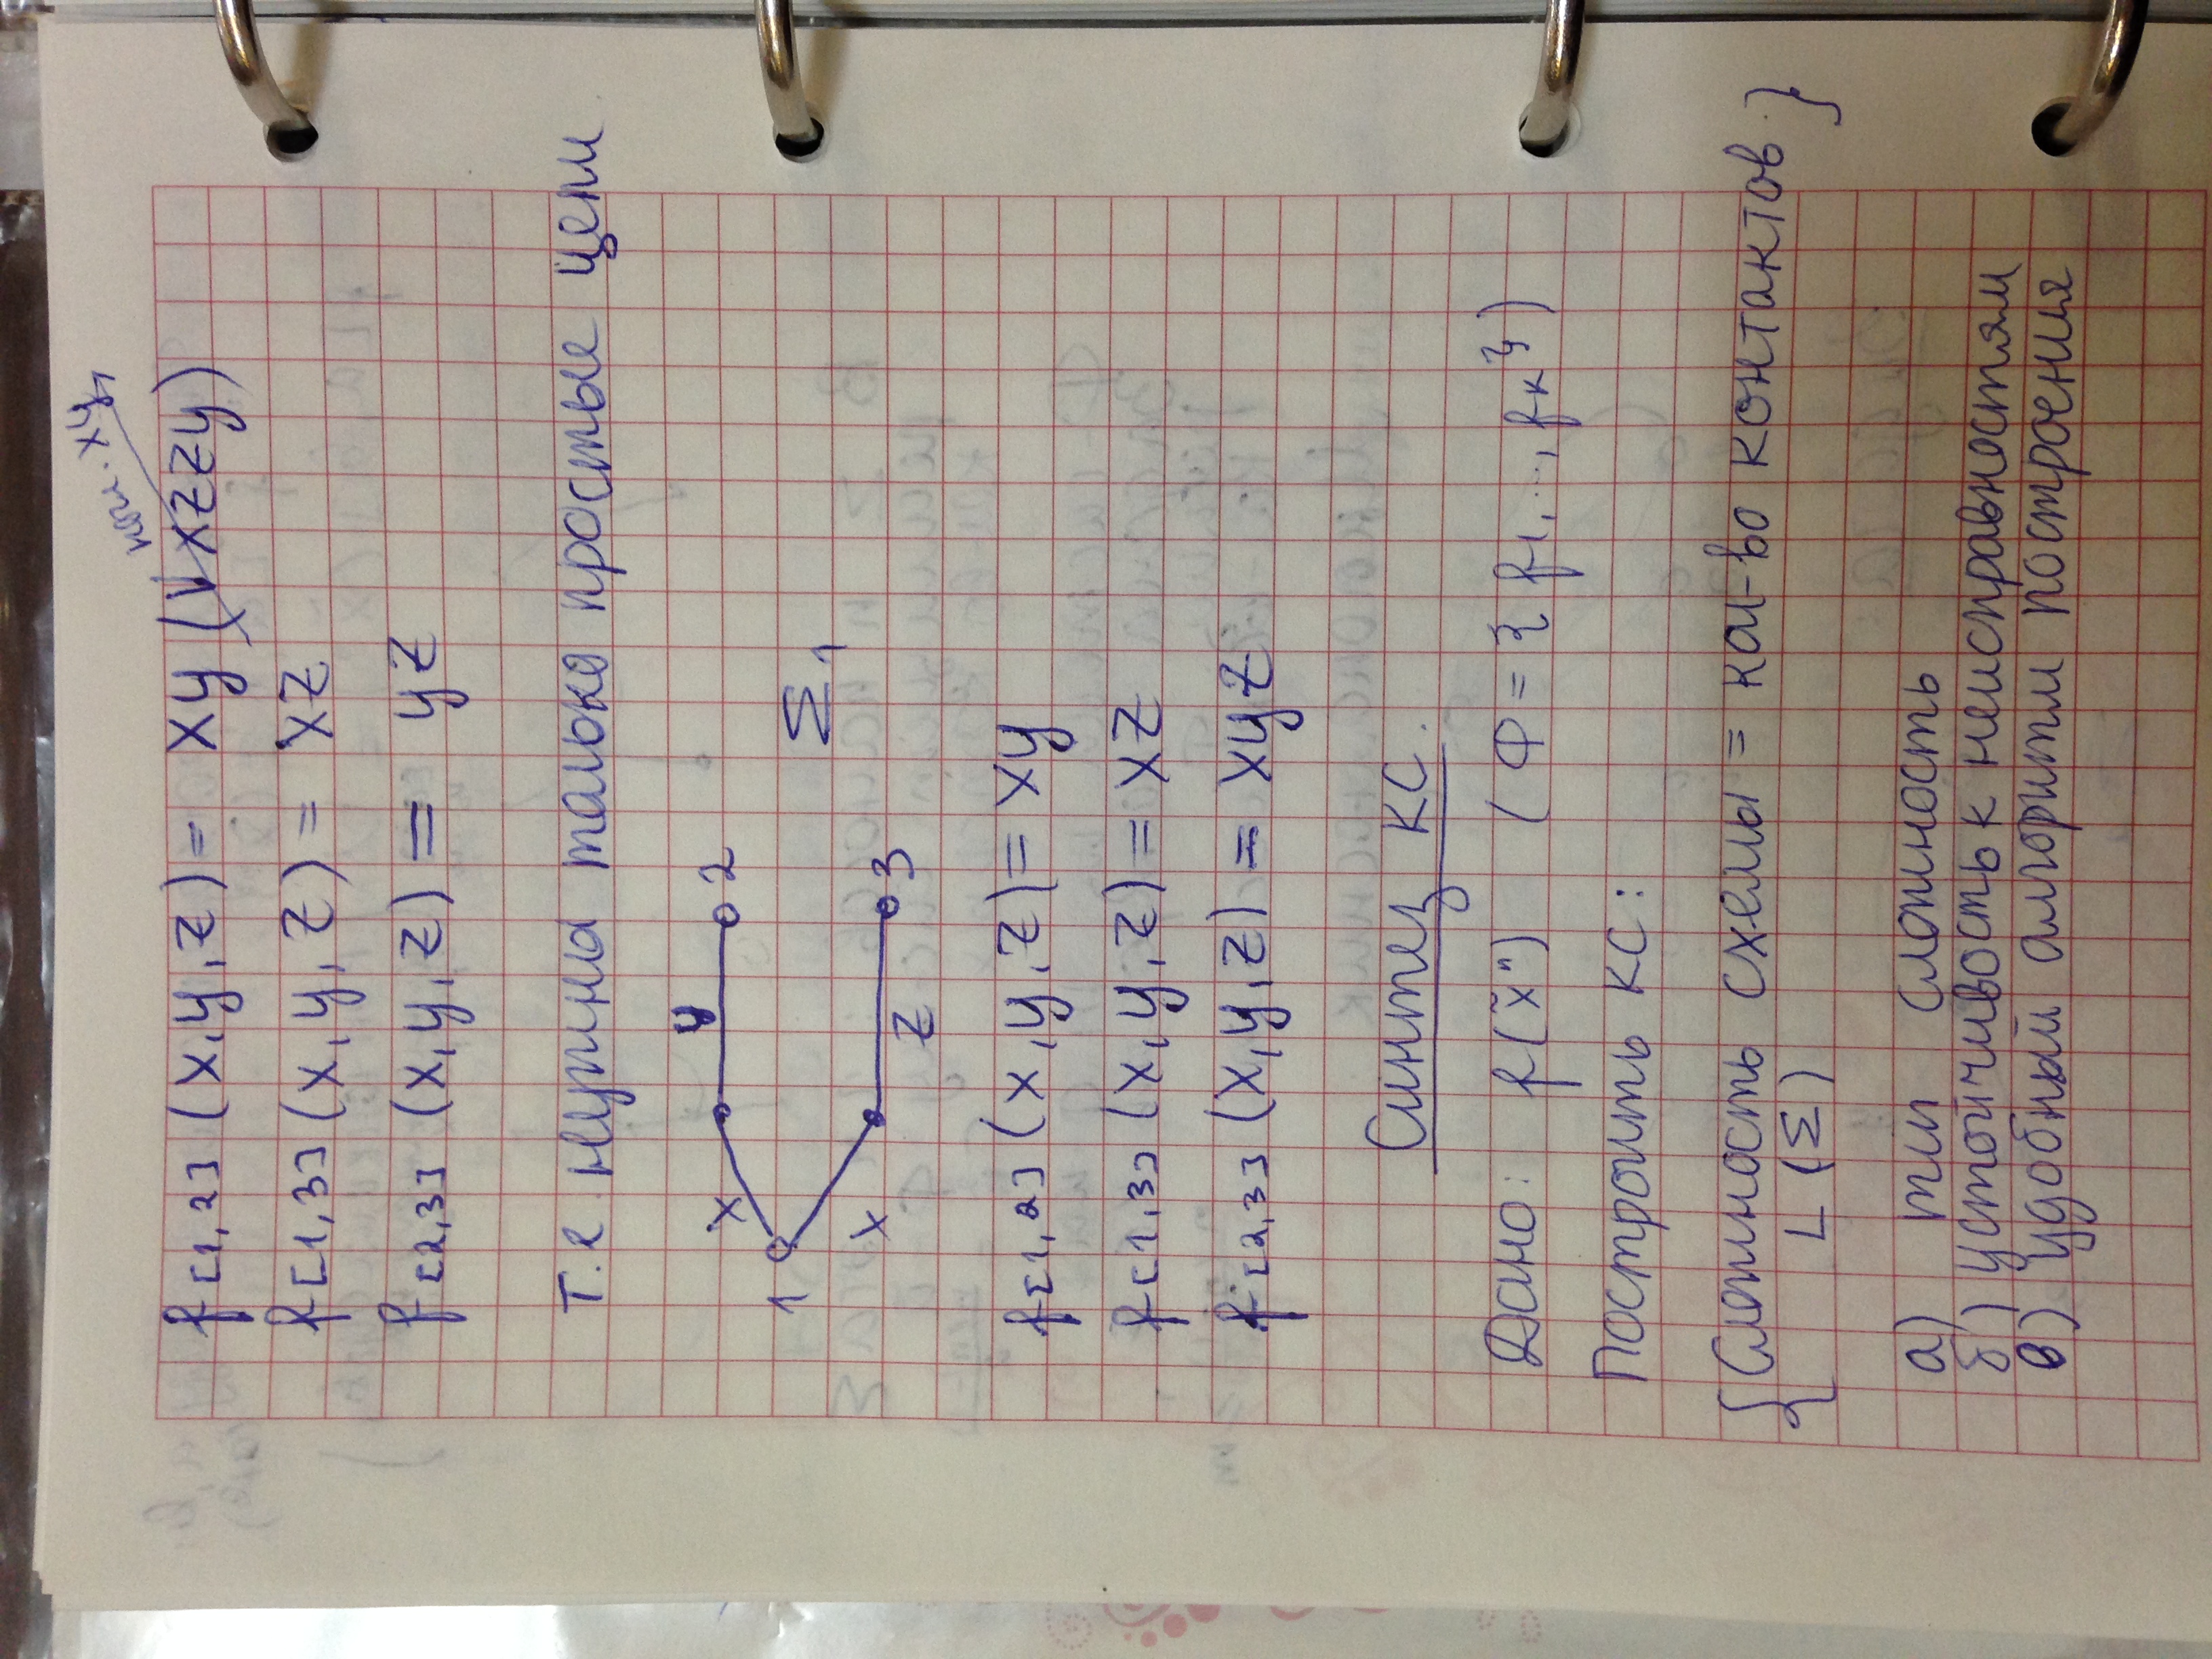 погл. xy
f[1,2] (x,y,z) = xy (∨xzzy)
f[1,3] (x,y,z) = xz
f[2,3] (x,y,z) = yz
Т.е нужна только простые цепи
x y 2
1 Σ1
x z 3
f[1,2] (x,y,z) = xy
f[1,3] (x,y,z) = xz
f[2,3] (x,y,z) = xyz
Синтез КС.
Дано: f(x̃ⁿ) (Φ = {f1,...,fк})
Построить КС:
{Сложность схемы = кол-во контактов}
L(Σ)
а) min сложность
б) устойчивость к неисправностям
в) удобный алгоритм построения